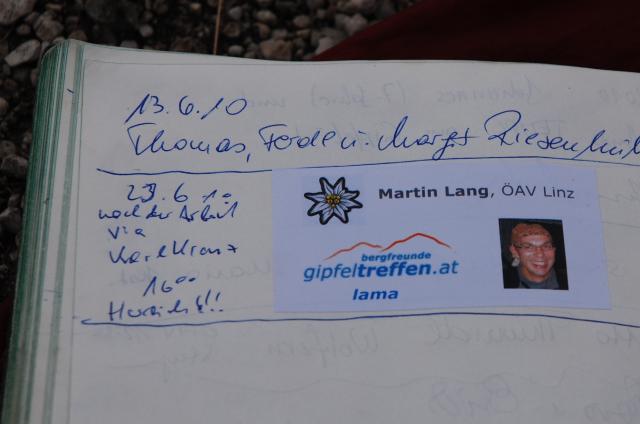 13.6.10
Thomas, Ferde u. Margit
23.6 10
nach der Arbeit
via
Karl Kranz
16⁰⁰
Herrlich!!!
Martin Lang, ÖAV Linz
bergfreunde
gipfeltreffen.at
lama